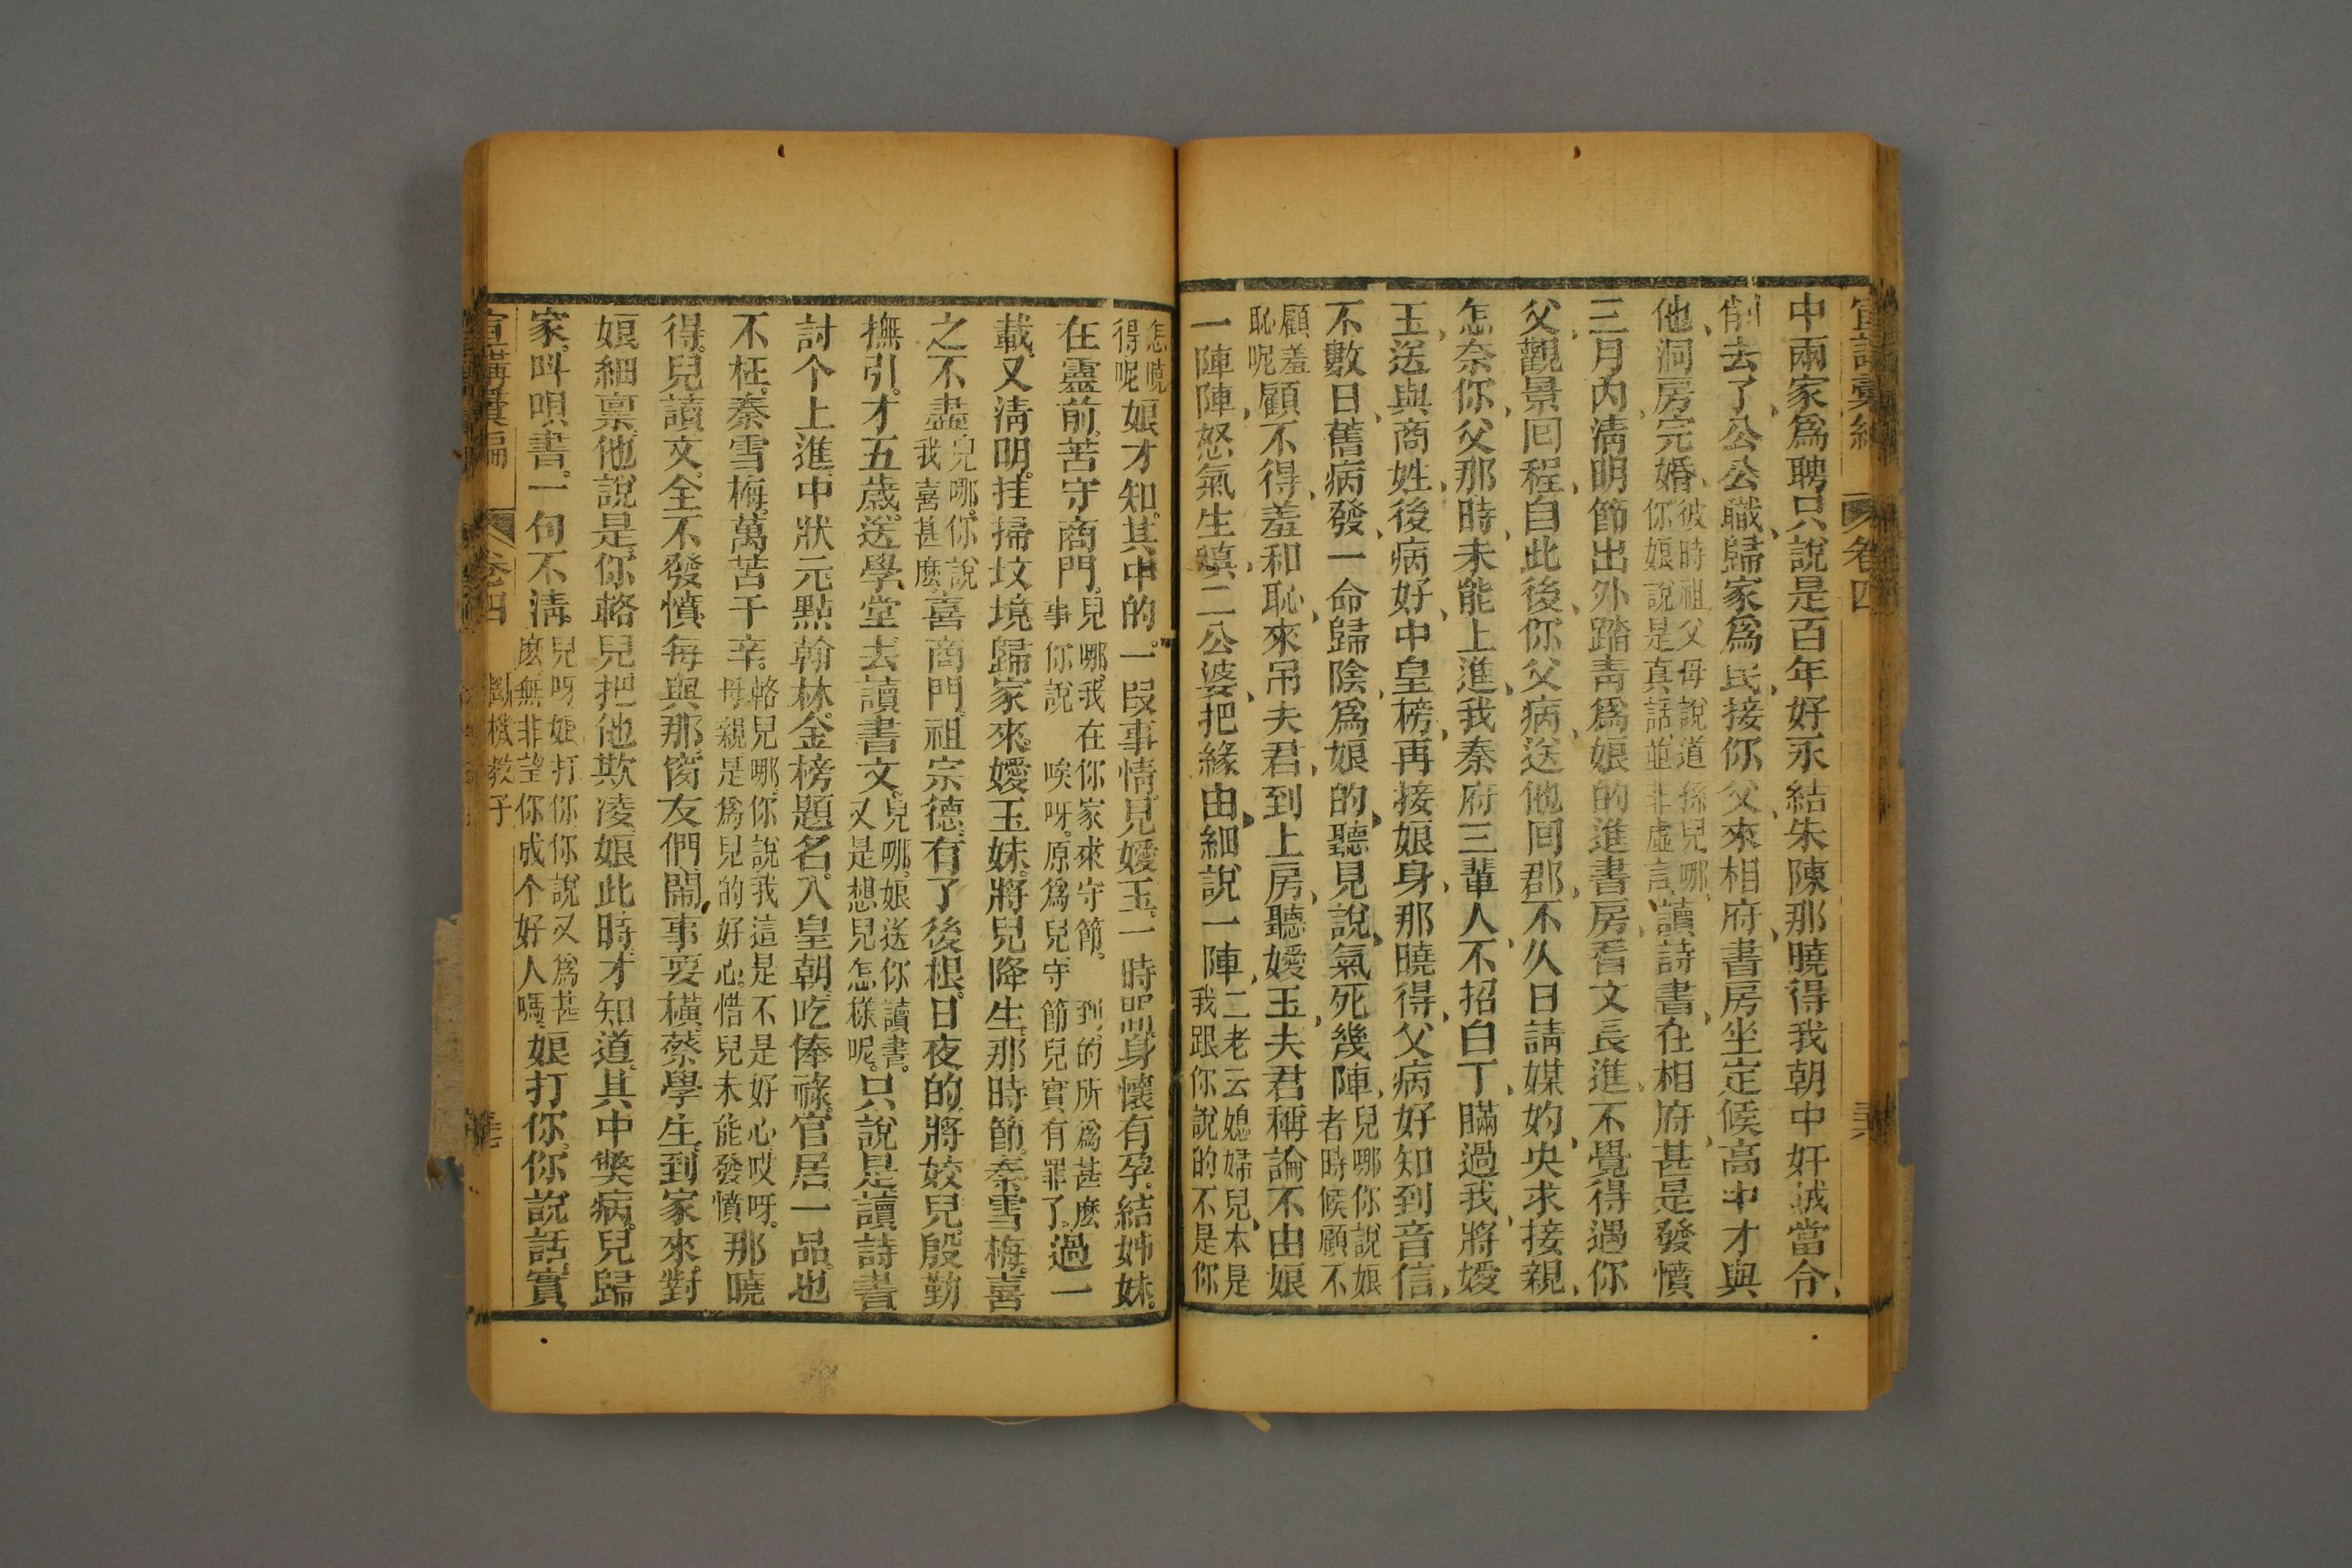 宣講彙編 卷四
中兩家爲聘只說是百年好永結朱陳那曉得我朝中奸賊當令、
削去了、公公職、歸家爲民、接你父、來相府、書房坐定候高中才與
他、洞房完婚、彼時祖父母說道孫兒哪、你娘說是真話、並非虛言、讀詩書、在相府、甚是發憤
三月內、清明節出外踏青爲娘的進書房、看文長進、不覺得遇你
父、觀景回程、自此後、你父病、送他回郡、不久日請媒妁、央求接親、
怎奈你、父那時、未能上進、我秦府三輩人、不招白丁、瞞過我、將嬡
玉、送與商姓、後病好、中皇榜、再接娘身、那曉得、父病好知到音信、
不數日、舊病發、一命歸陰、爲娘的、聽見說、氣死幾陣、兒哪你說娘者時候顧不
顧羞恥呢顧不得、羞和恥、來吊夫君、到上房、聽嬡玉、夫君稱論不由娘
一陣陣、怒氣生嗔、二公婆、把緣由、細說一陣、二老云媳婦兒、本是我跟你說的不是你
怎曉得呢娘才知、其中的。一段事情、見嬡玉、一時間身懷有孕、結姊妹。
在靈前、苦守商門。兒哪。我在你家來守節。到的所爲甚麼。事你說唉呀。原爲兒守節兒實有罪了。過一
載、又清明。挂掃坟境歸家來。嬡玉妹。將兒降生、那時節。秦雪梅。喜
之不盡兒哪。你說我喜甚麼。喜商門。祖宗德。有了後根。日夜的、將姣兒、殷勤
撫引。才五歲。送學堂去讀書文。兒哪。娘送你讀書。又是想兒怎樣呢。只說是、讀詩書
討个上進、中狀元點翰林。金榜題名。入皇朝、吃俸祿、官居一品。也
不枉。秦雪梅。萬苦千辛。輅兒哪、你說我這是不是好心、哎呀。母親是爲兒的好心。惜兒未能發憤那曉
得。兒讀文、全不發憤、每與那窗友們、鬧事耍橫、蔡學生、到家來。對
娘細禀、他說是、你輅兒把他欺凌、娘此時。才知道、其中獘病。兒歸
家。叫唄書。一句不清。兒呀娘打你你說又爲甚麼、無非望你成个好人嗎、娘打你。你說話、實
宣講彙編 卷四 斷機教子